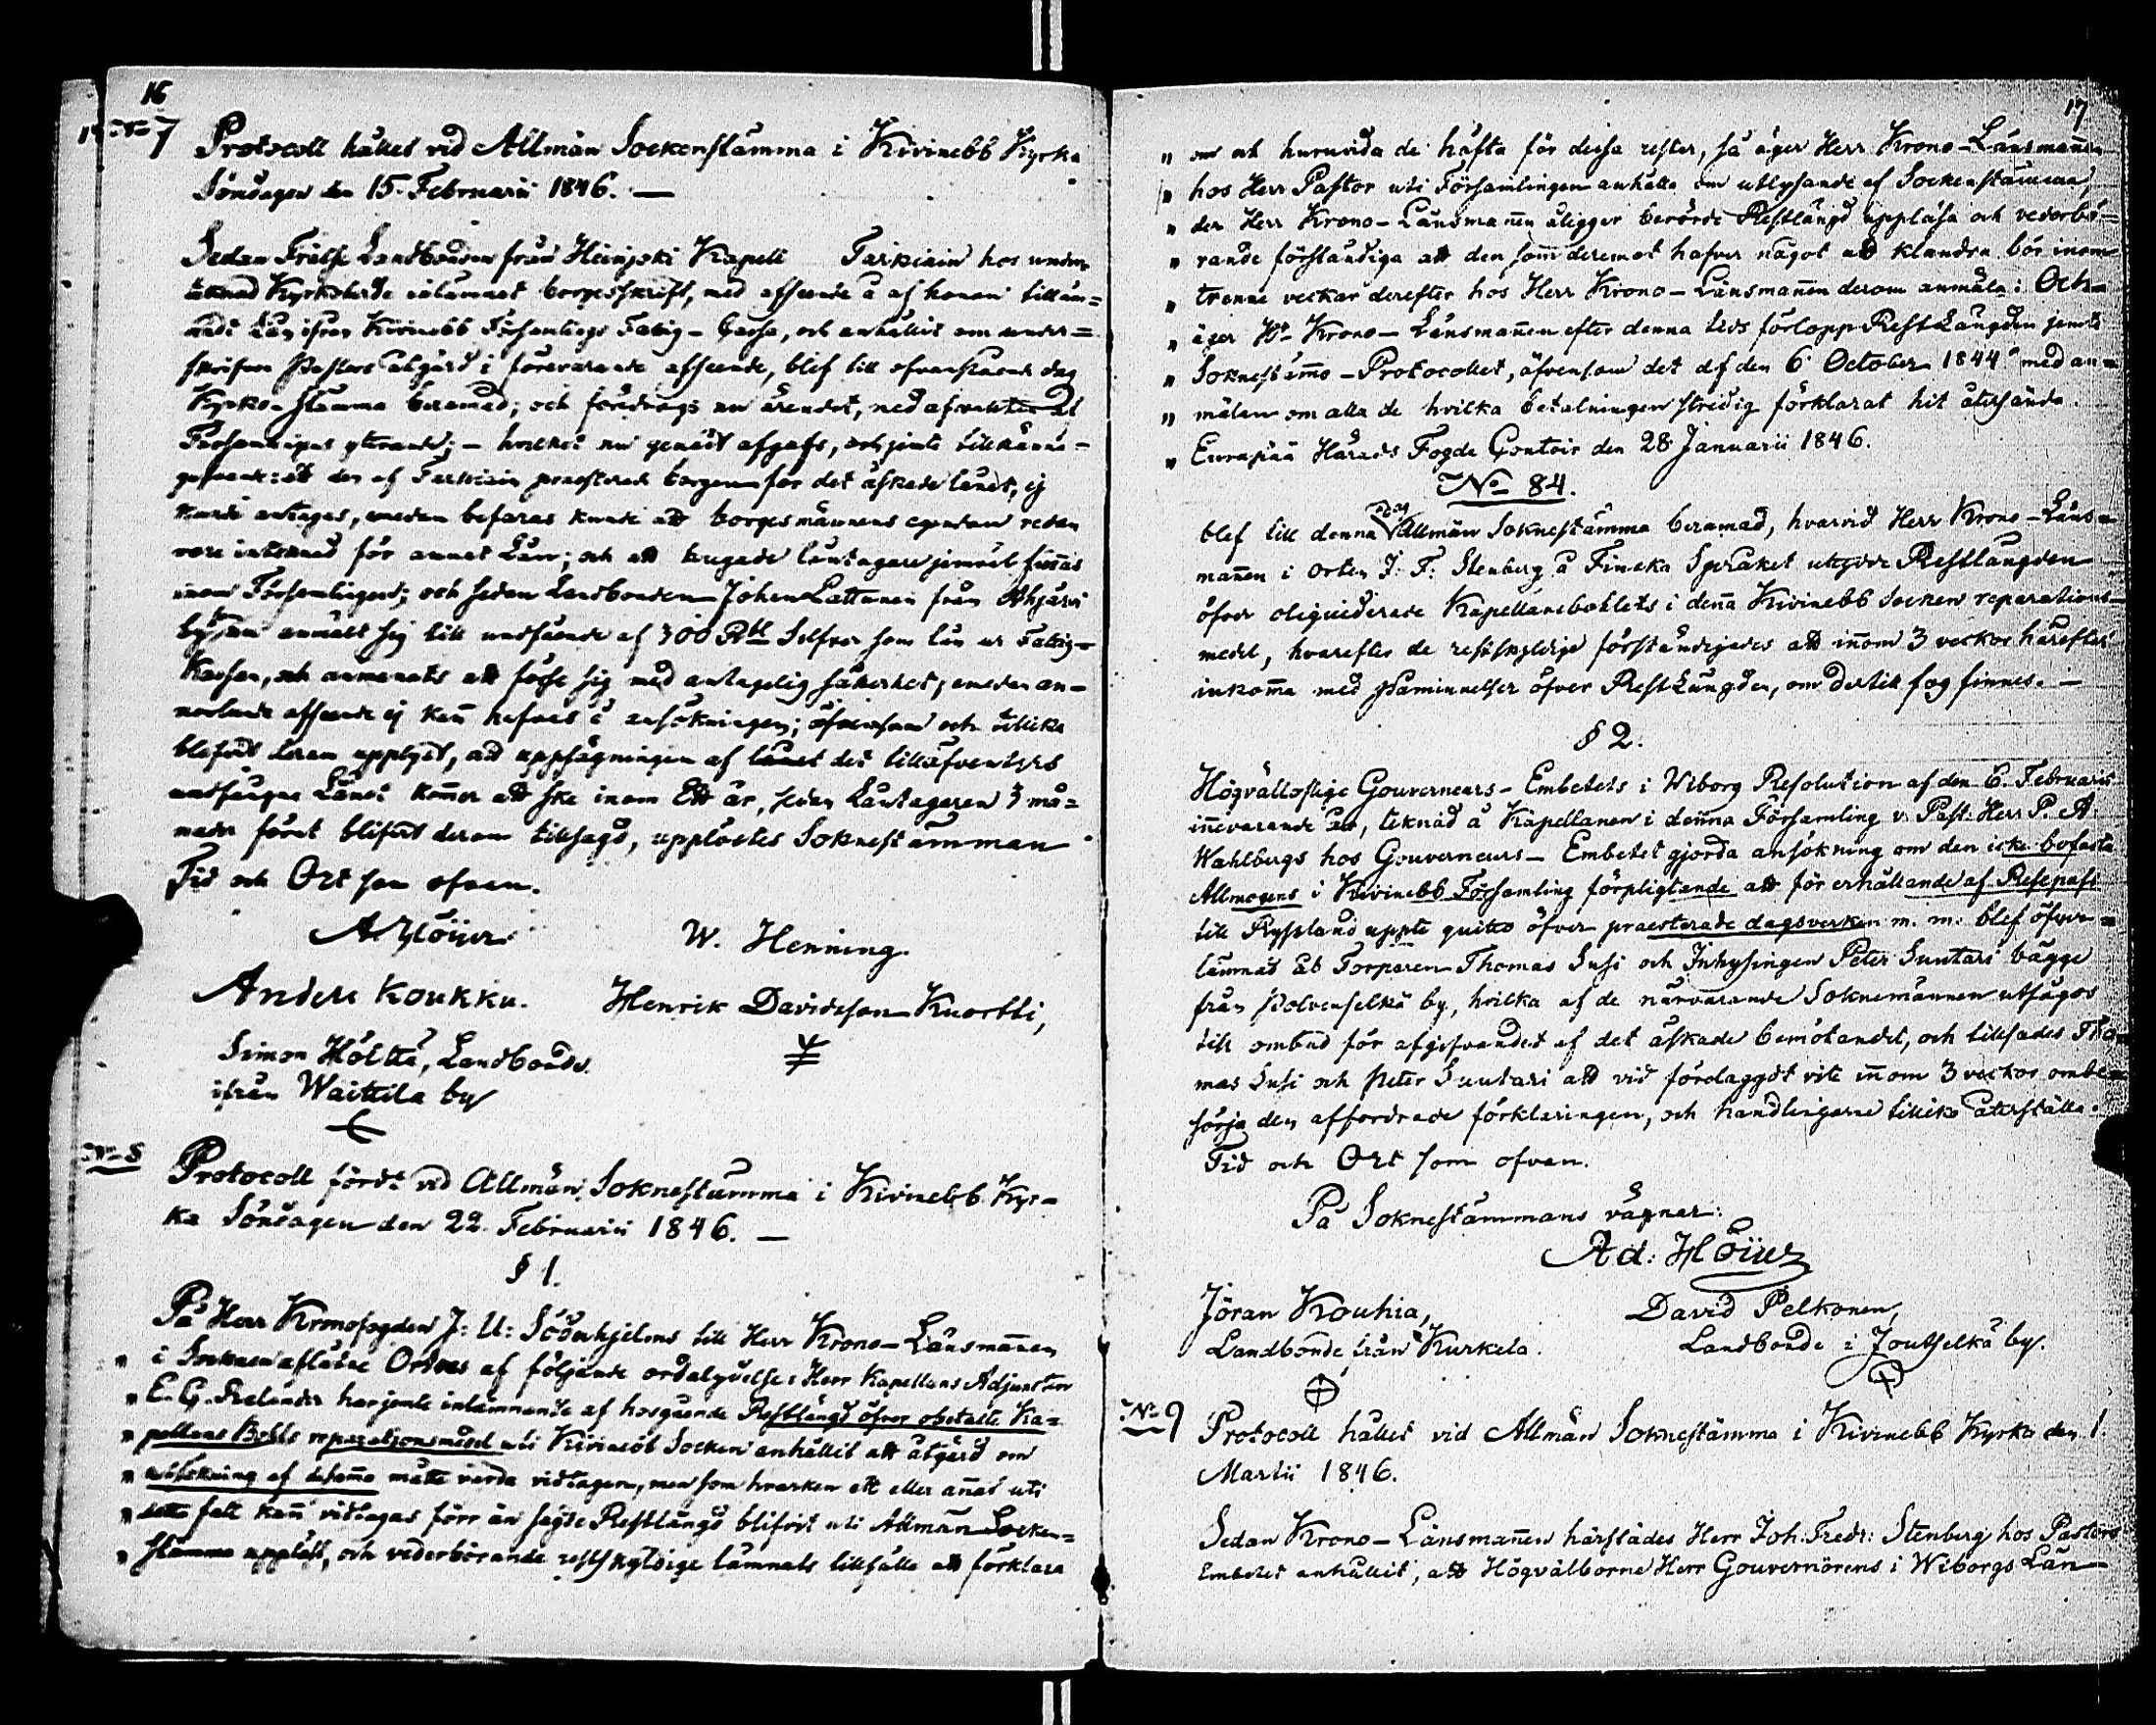 16
No 7
Protocoll hållet vid Allmän Sockenstämma i Kivinebb Kyrka
Söndagen den 15 Februarii 1846. —
Sedan Frälse Landbonden från Heinjoki Kapell Tarkiain hos under-
tecknad Kyrkoherde inlämnat borgesskrift, med afseende å af honom tillän-
nadt Lån ifrån Kivinebb Församlings Fattig-Cassa, och anhållit om under-
skrifven Pastors åtgärd i förevarande afseende, blef till ofvanstående dag
Kyrko-stämma beramad; och föredrogs nu ärendet, med afvaktande af
Församlingens yttrande; — hvilket nu genast afgafs, och jemte tillkänna-
gifvande: att den af Tarkiain praesterade borgen för det äskade lånet, ej
kunde antagas, emedan befaras kunde att borgesmännens egendom redan
vore intecknad för annat Lån; och att trugade låntagare jemväl finnas
inom Församlingen; och sedan Landbonden Johan Lattunen från Ahjärvi
by anmält sig till undfående af 300 Rbl Silfver som lån ur Fattig-
Kassan, och anmanats att förse sig med antagelig säkerhet, emedan an-
norlunda afseende ej kan hafvas å ansökningen; äfvensom och tillika
blifvit derom upplyst, att uppsägningen af lånet det tilläfventyrs
undfångna Lånet kommer att ske inom Ett år, sedan Låntagaren 3 må-
nader förut blifvit derom tillsagd, upplöstes Soknestämman
Tid och Ort som ofvan.
A Höijer W. Henning.
Anders Koukku. Henrik Davidsson Kuortti,
Simon Hölttä, Landbonde
ifrån Waittila by
No 8
Protocoll fördt vid Allmän Soknestämma i Kivinebb Kyr-
ka Söndagen den 22. Februarii 1846. —
§ 1.
På Herr Kronofogden J: U: Söderhjelms till Herr Krono-Länsmannen
" i Socknen aflåtne Ordres af följande ordalydelse: Herr Kapellans Adjuncten
" E. G. Relander har jemte inlämnande af hosgående Restlängd öfver obetalte Ka-
" pellans Bohls reparationsmedel uti Kivinebb Socken anhållit att åtgärd om
" utsökning af desamma måtte varda vidtagen, men som hvarken ett eller annat uti
" detta fall kan vidtagas förr än sagde Restlängd blifvit uti Allmän Socken-
" stämma uppläst, och vederbörande restskyldige lämnats tillfälle att förklara
17
" om och huruvida de häfta för dessa rester, så äger Herr Krono-Länsmannen
" hos Herr Pastor uti Församlingen anhålla om utlysande af Sockenstämma,
" der Herr Krono-Länsmannen åligger berörde Restlängd uppläsa och vederbö-
" rande förständiga att den som deremot hafver något att klandra bör inom
" trenne veckor derefter hos Herr Krono-Länsmannen derom anmäla: Och
" äger Hr Krono-Länsmannen efter denna tids förlopp RestLängden jemte
" Soknestämmo-Protocollet, äfvensom det af den 6 October 1844 med an-
" mälan om alla de hvilka betalningen stridig förklarat hit återsända.
" Euräpää Härads Fogde Contoir den 28 Januarii 1846.
No 84.
blef till denna dag Allmän Soknestämma beramad, hvarvid Herr Krono-Läns-
mannen i orten J: F: Stenberg å Finska Språket utgjorde Restlängden
öfver oliquiderade Kapellansbohlets i denna Kivinebb Socken reparations-
medel, hvarefter de restskyldige förständigades att inom 3 veckor härefter
inkomma med påminnelser öfver RestLängden, om dertill fog finnes. —
§ 2.
Högvälloflige Gouverneurs-Embetets i Wiborg Resolution af den 6. Februarii
innevarande år, teknad å Kapellanen i denna Församling v. Past: Herr P. A
Wahlbergs hos Gouverneurs-Embetet gjorda ansökning om den icke bofasta
Allmogens i Kivinebb Församling förpligtande att för erhållande af Resepass
till Ryssland uppte quitto öfver praesterade dagsverken m. m. blef öfver-
lämnad åt Torparen Thomas Susi och Inhysingen Peter Suntari bägge
från Polvenselkä by, hvilka af de närvarande Soknemännen utsågos
till ombud för afgifvandet af det äskade bemötandet, och tillsades Tho-
mas Susi och Peter Suntari att vid förelaggdt vite innom 3 veckor ombe-
sörja den affordrade förklaringen, och handlingarne tillika återställa.
Tid och Ort som ofvan.
På Soknestämmans vägnar:
Ad: Höijer
Jöran Kouhia, David Pelkonen,
Landbonde från Kurkela. Landbonde i Joutselkä by.
No 9
Protocoll hållet vid Allmän Soknestämma i Kivinebb Kyrka den 1.
Martii 1846.
Sedan Krono-Länsmannen härstädes Herr Joh: Fredr: Stenberg hos Pastors
Embetet anhållit, att Högvälborne Herr Gouvernörens i Wiborgs Län